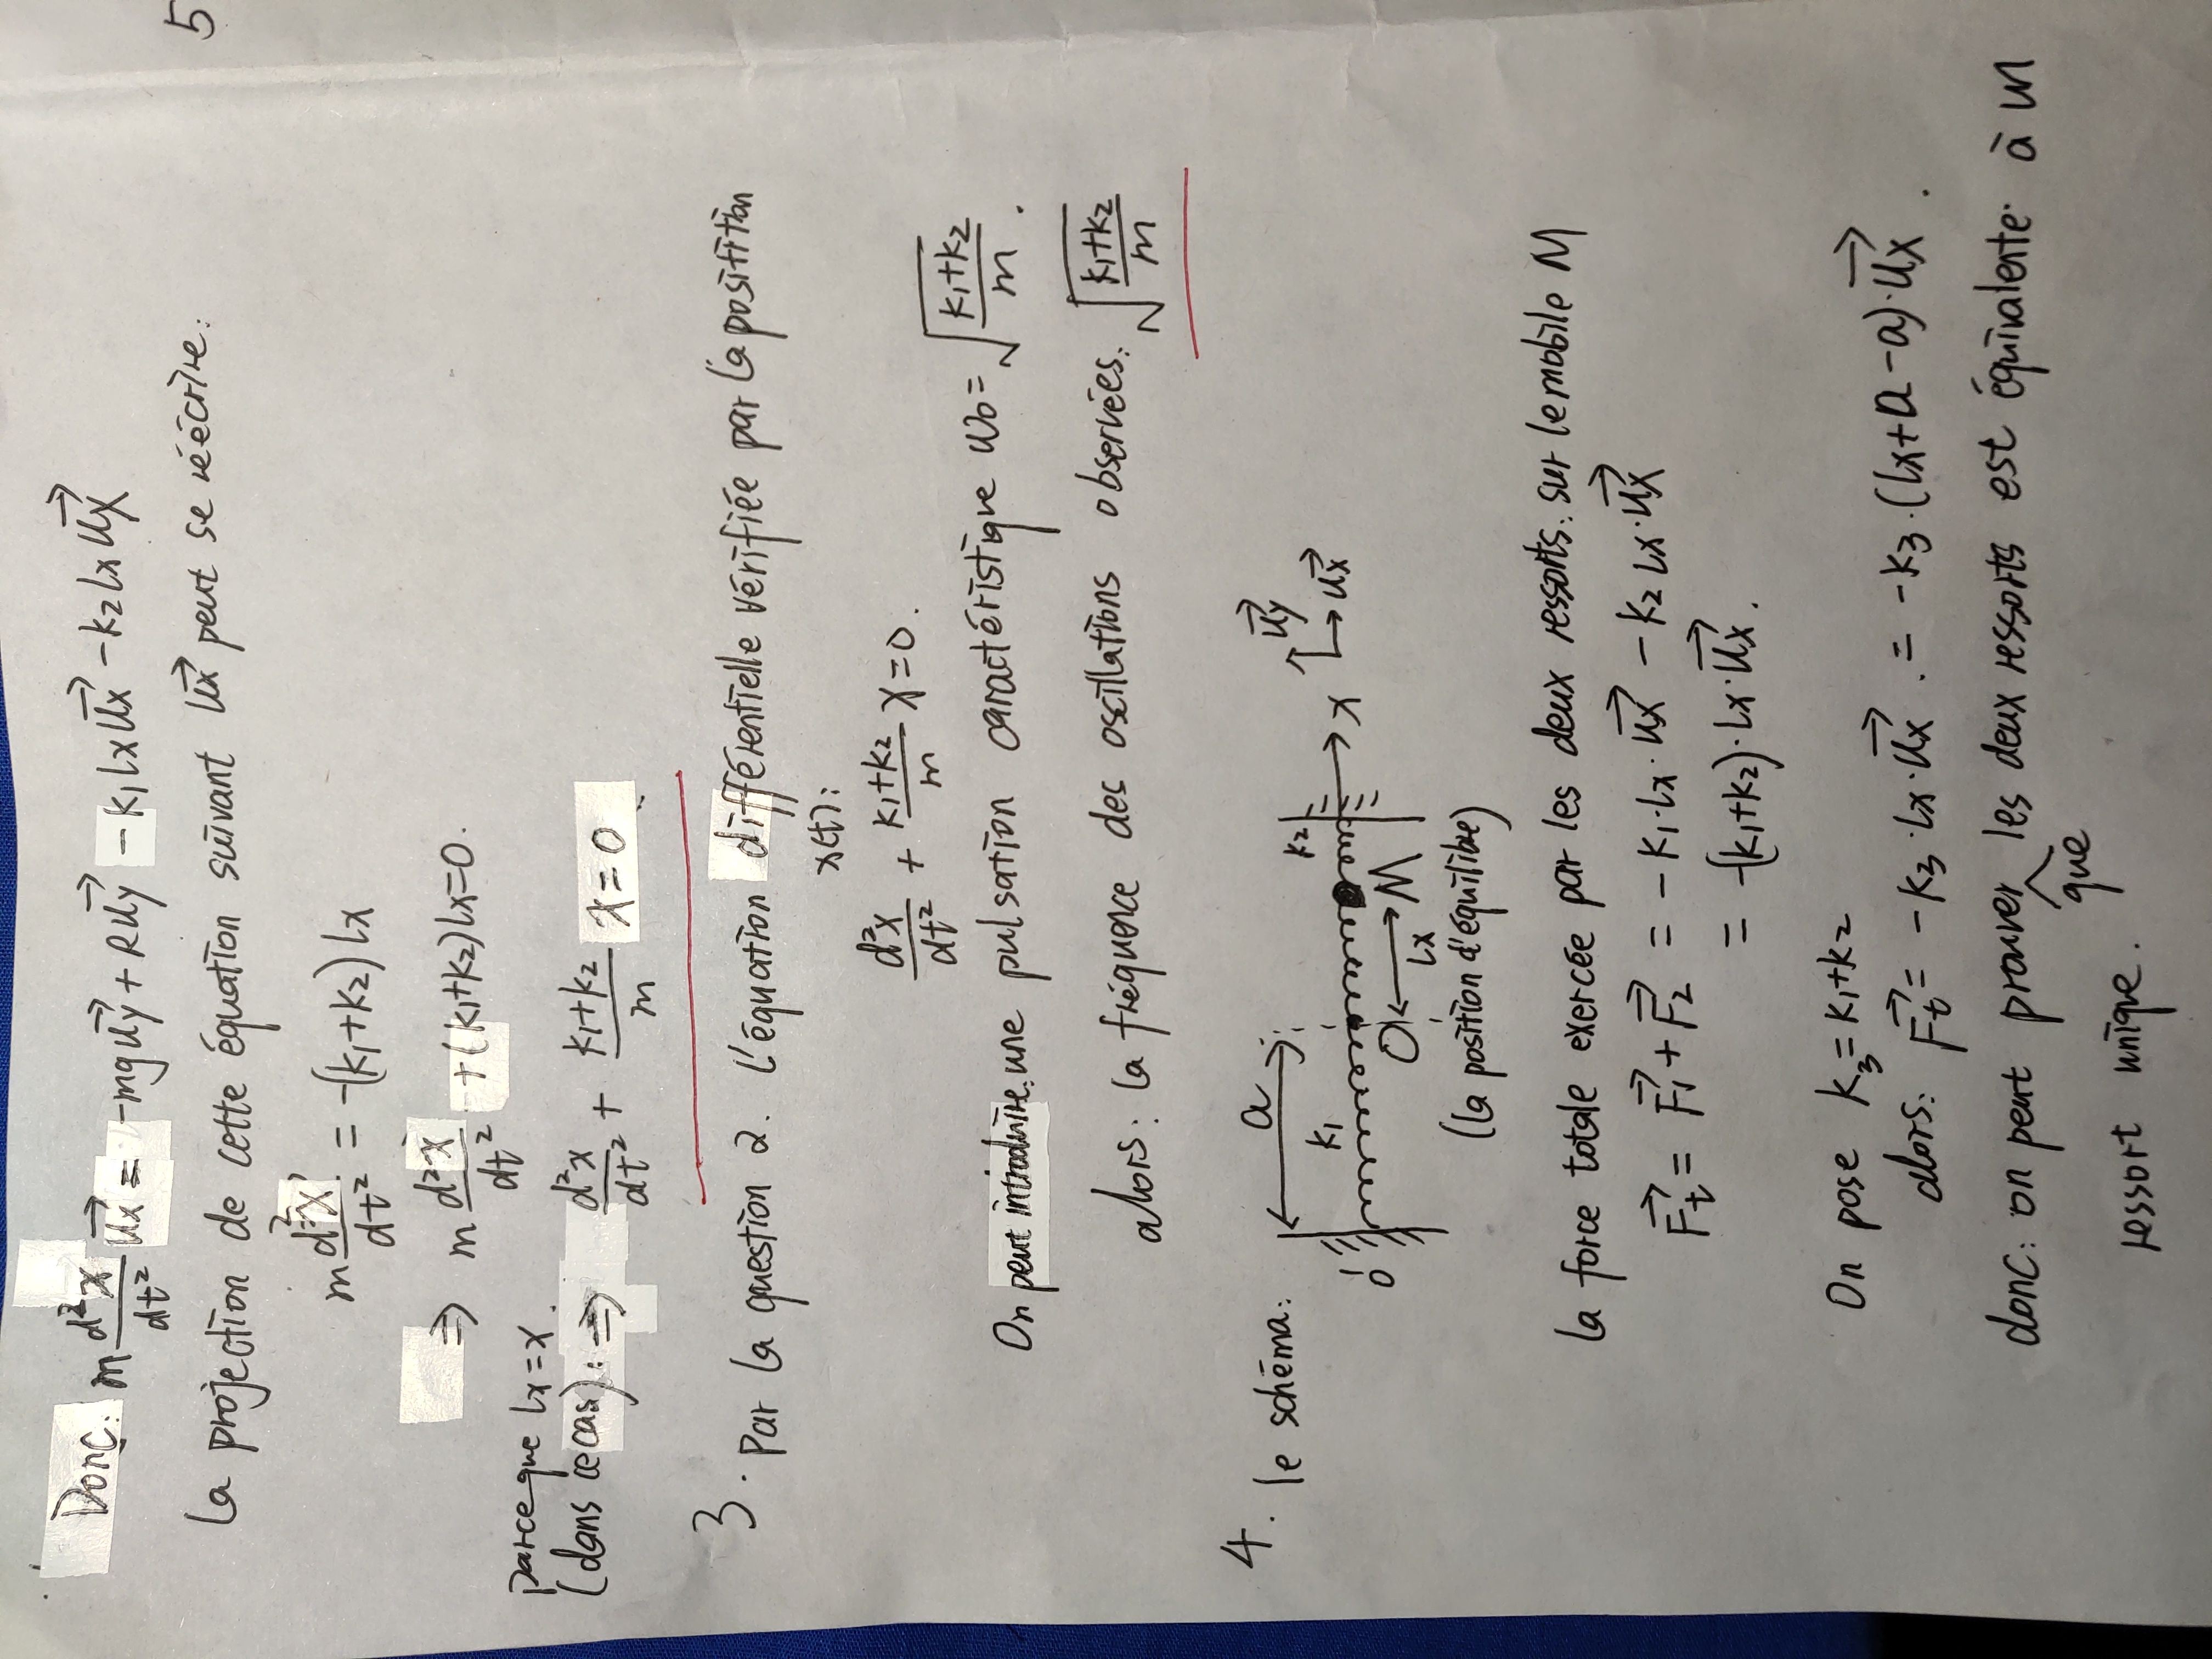 Donc: m d²x/dt² u⃗x = -mg u⃗y + R u⃗y - k₁ lx u⃗x - k₂ lx u⃗x
5
la projection de cette équation suivant u⃗x peut se réécrire:
m d²x/dt² = -(k₁+k₂) lx
⇒ m d²x/dt² + (k₁+k₂) lx = 0.
parce que lx = x.
(dans ce cas): ⇒ d²x/dt² + (k₁+k₂)/m x = 0
3. Par la question 2. l'équation différentielle vérifiée par la positition
x(t):
d²x/dt² + (k₁+k₂)/m x = 0.
On peut introduire: une pulsation caractéristique ω₀ = √((k₁+k₂)/m).
alors: la fréquence des oscillations observées: √((k₁+k₂)/m)
4. le schéma:
a
u⃗y
k₁ k₂
O' x u⃗x
O lx M
(la position d'équilibre)
la force totale exercée par les deux ressorts. sur le mobile M
F⃗t = F⃗₁ + F⃗₂ = -k₁·lx·u⃗x - k₂ lx·u⃗x
= -(k₁+k₂)·lx·u⃗x.
On pose k₃ = k₁+k₂
alors: F⃗t = -k₃·lx·u⃗x. = -k₃·(lx+a-a)·u⃗x.
donc: on peut prouver que les deux ressorts est équivalente à un
ressort unique.